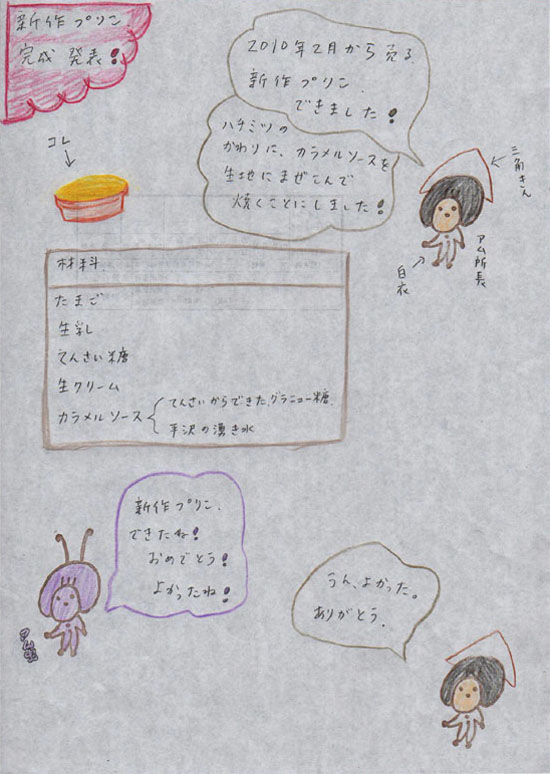 新作プリン
完成発表!
2010年2月から売る
新作プリン
できました!
ハチミツの
かわりに、カラメルソースを
生地にまぜこんで
焼くことにしました!
コレ
三角きん
アム所長
白衣
材料
たまご
生乳
てんさい糖
生クリーム
カラメルソース
てんさいからできたグラニュー糖
平沢の湧き水
新作プリン
できたね!
おめでとう!
よかったね!
アム
うん、よかった。
ありがとう。